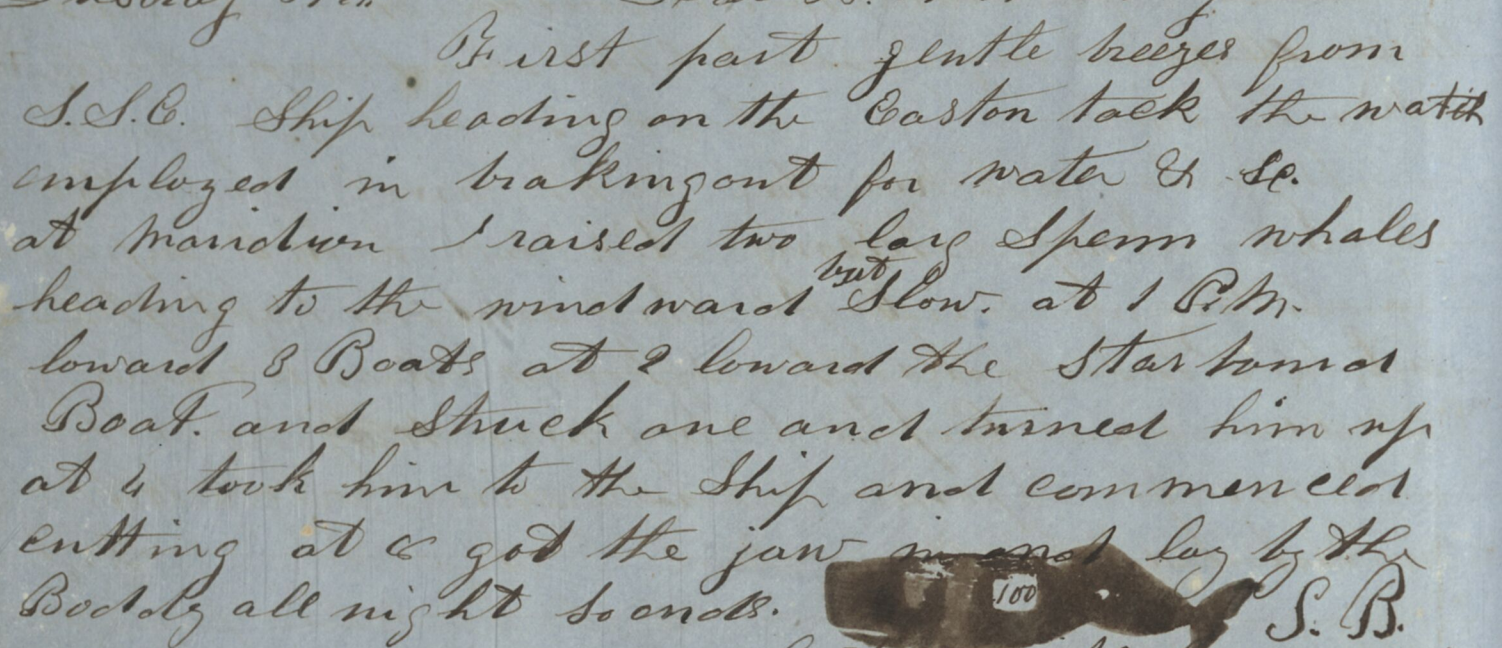 First part gentle breezes from
S.S.E. Ship heading on the Easton tack the watch
employed in braking out for water & &c.
at maridion I raised two larg Sperm whales
heading to the windward but Slow. at 1 P.M.
loward 3 Boats at 2 loward the Starboard
Boat. and Struck one and turned him up
at 4 took him to the Ship and commenced
cutting at 6 got the jaw in and lay by the
Boddy all night So ends.
100
S. B.